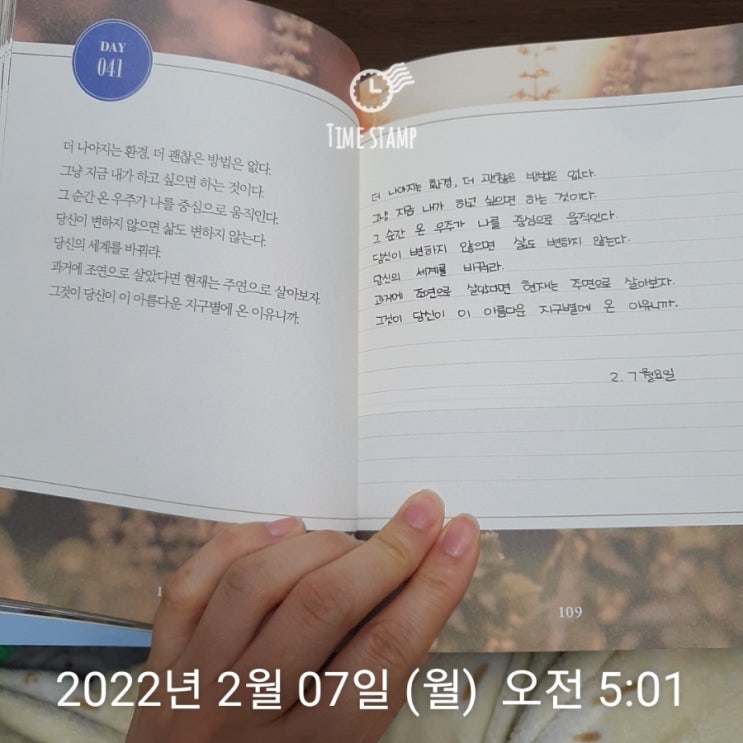 DAY
041
TIME STAMP
더 나아지는 환경, 더 괜찮은 방법은 없다.
그냥 지금 내가 하고 싶으면 하는 것이다.
그 순간 온 우주가 나를 중심으로 움직인다.
당신이 변하지 않으면 삶도 변하지 않는다.
당신의 세계를 바꿔라.
과거에 조연으로 살았다면 현재는 주연으로 살아보자.
그것이 당신이 이 아름다운 지구별에 온 이유니까.
더 나아지는 환경, 더 괜찮은 방법은 없다.
그냥 지금 내가 하고 싶으면 하는 것이다.
그 순간 온 우주가 나를 중심으로 움직인다.
당신이 변하지 않으면 삶도 변하지 않는다.
당신의 세계를 바꿔라.
과거에 조연으로 살았다면 현재는 주연으로 살아보자.
그것이 당신이 이 아름다운 지구별에 온 이유니까.
2. 7 월요일
109
2022년 2월 07일 (월) 오전 5:01